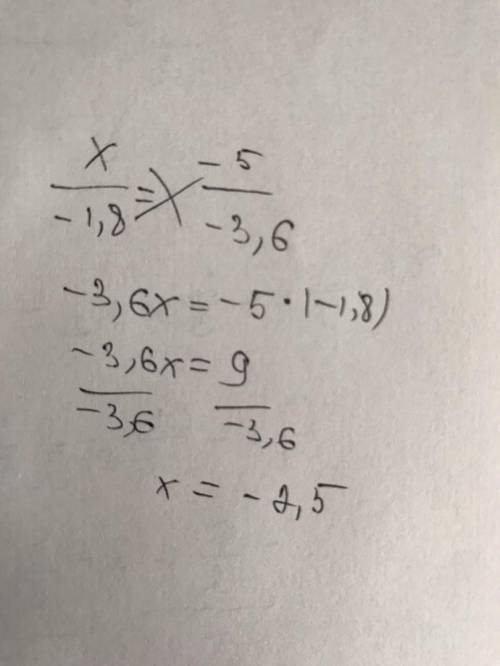 x/-1,8 = -5/-3,6
-3,6x = -5·(-1,8)
-3,6x/-3,6 = 9/-3,6
x = -2,5